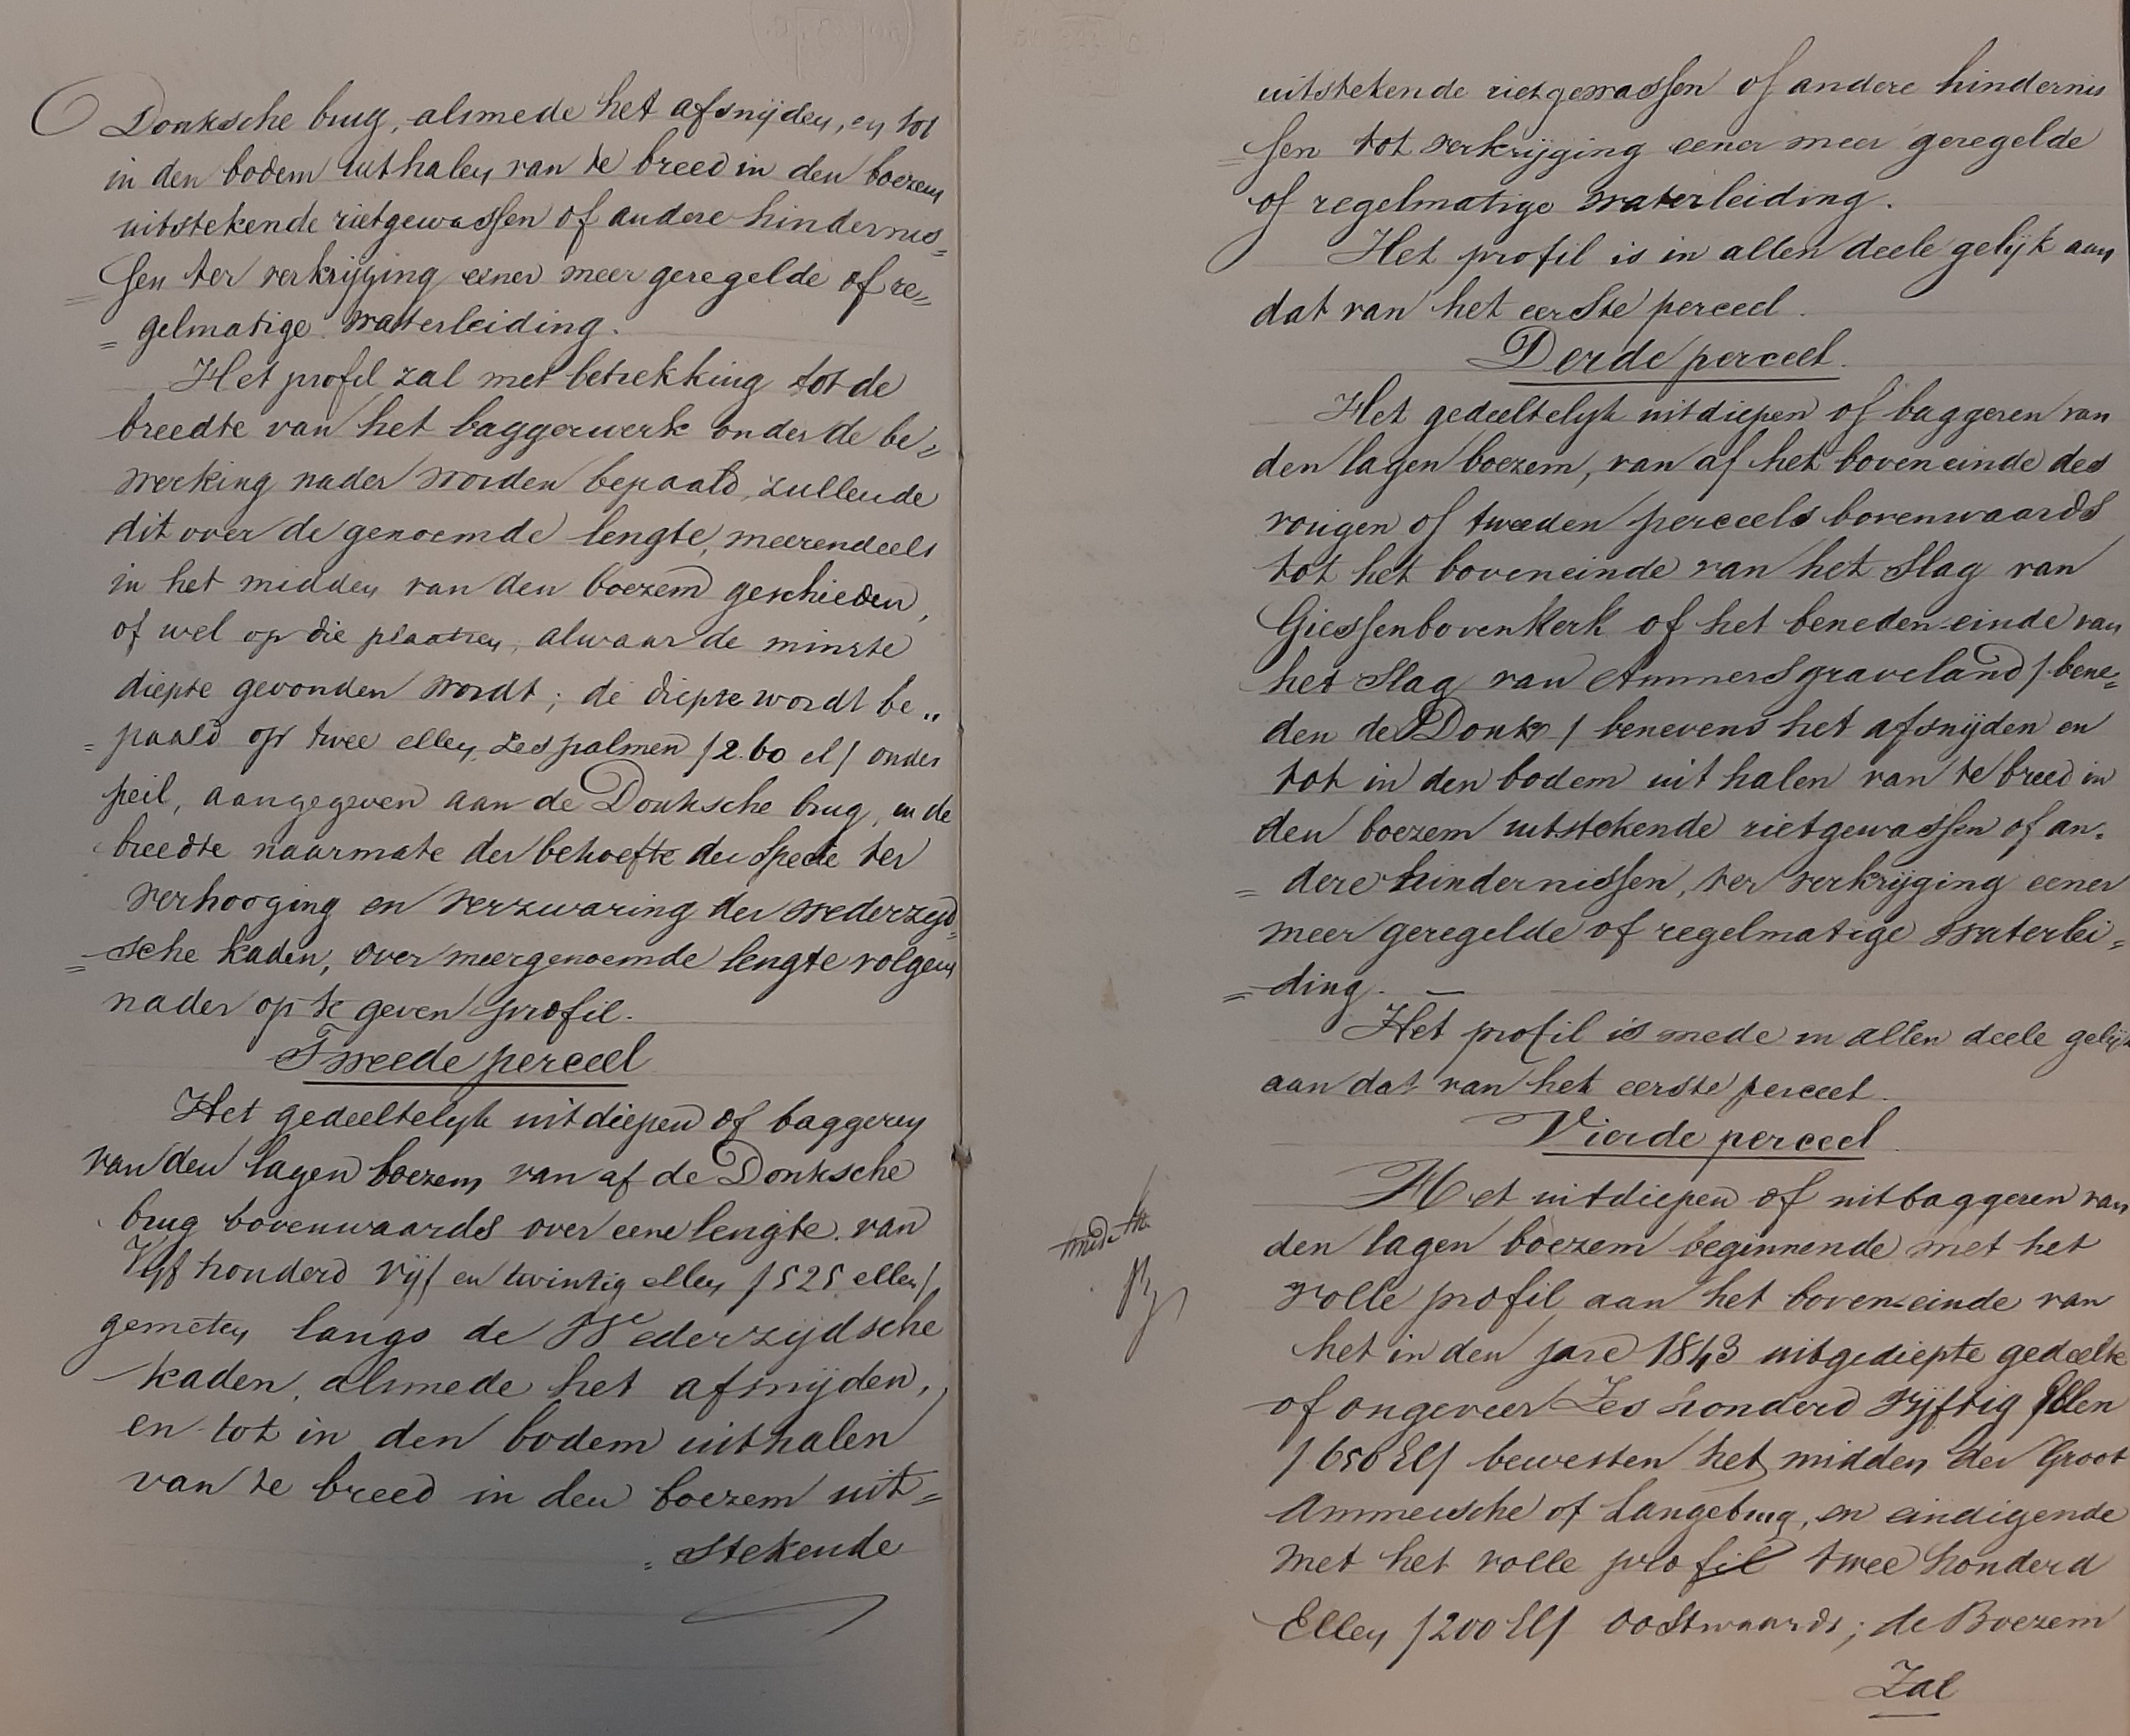 Donksche brug, alsmede het afsnijden, en tot
in den bodem uithalen van te breed in den boezem
uitstekende rietgewassen of andere hindernis=
=sen ter verkrijging eener meer geregelde of re=
=gelmatige waterleiding.
Het profil zal met betrekking tot de
breedte van het baggerwerk onder de be=
werking nader worden bepaald, zullende
dit over de genoemde lengte, meerendeels
in het midden van den boezem geschieden,
of wel op die plaatsen, alwaar de minste
diepte gevonden wordt; de diepte wordt be=
=paald op twee ellen, zes palmen /2.60 el/ onder
peil, aangegeven aan de Donksche brug, en de
breedte naarmate der behoefte der specie ter
verhooging en verzwaring der wederzijd=
=sche kaden, over meergenoemde lengte volgens
nader op te geven profil.
Tweede perceel
Het gedeeltelijk uitdiepen of baggeren
van den lagen boezem van af de Donksche
brug bovenwaards over eene lengte van
Vijf honderd vijf en twintig ellen /525 ellen/
gemeten langs de Wederzijdsche
kaden, alsmede het afsnijden,
en tot in den bodem uithalen
van te breed in den boezem uit=
=stekende
uitstekende rietgewassen of andere hindernis
=sen tot verkrijging eener meer geregelde
of regelmatige waterleiding.
Het profil is in allen deele gelijk aan
dat van het eerste perceel.
Derde perceel.
Het gedeeltelijk uitdiepen of baggeren van
den lagen boezem, van af het boveneinde des
vorigen of tweeden perceels bovenwaards
tot het boveneinde van het Slag van
Giessenbovenkerk of het beneden einde van
het Slag van Ammersgraveland /bene=
den de Donk/ benevens het afsnijden en
tot in den bodem uit halen van te breed in
den boezem uitstekende rietgewassen of an=
=dere hindernissen, ter verkrijging eener
meer geregelde of regelmatige waterlei=
=ding. —
Het profil is mede in allen deele gelijk
aan dat van het eerste perceel.
Vierde perceel
Het uitdiepen of uitbaggeren van
den lagen boezem beginnende met het
volle profil aan het boven-einde van
het in den jare 1843 uitgediepte gedeelte
of ongeveer Zes honderd vijftig Ellen
/650 El/ bewesten het midden der Groot
Ammersche of Langebrug, en eindigende
met het volle profil twee honderd
Ellen /200 El/ oostwaards; de Boezem
Zal